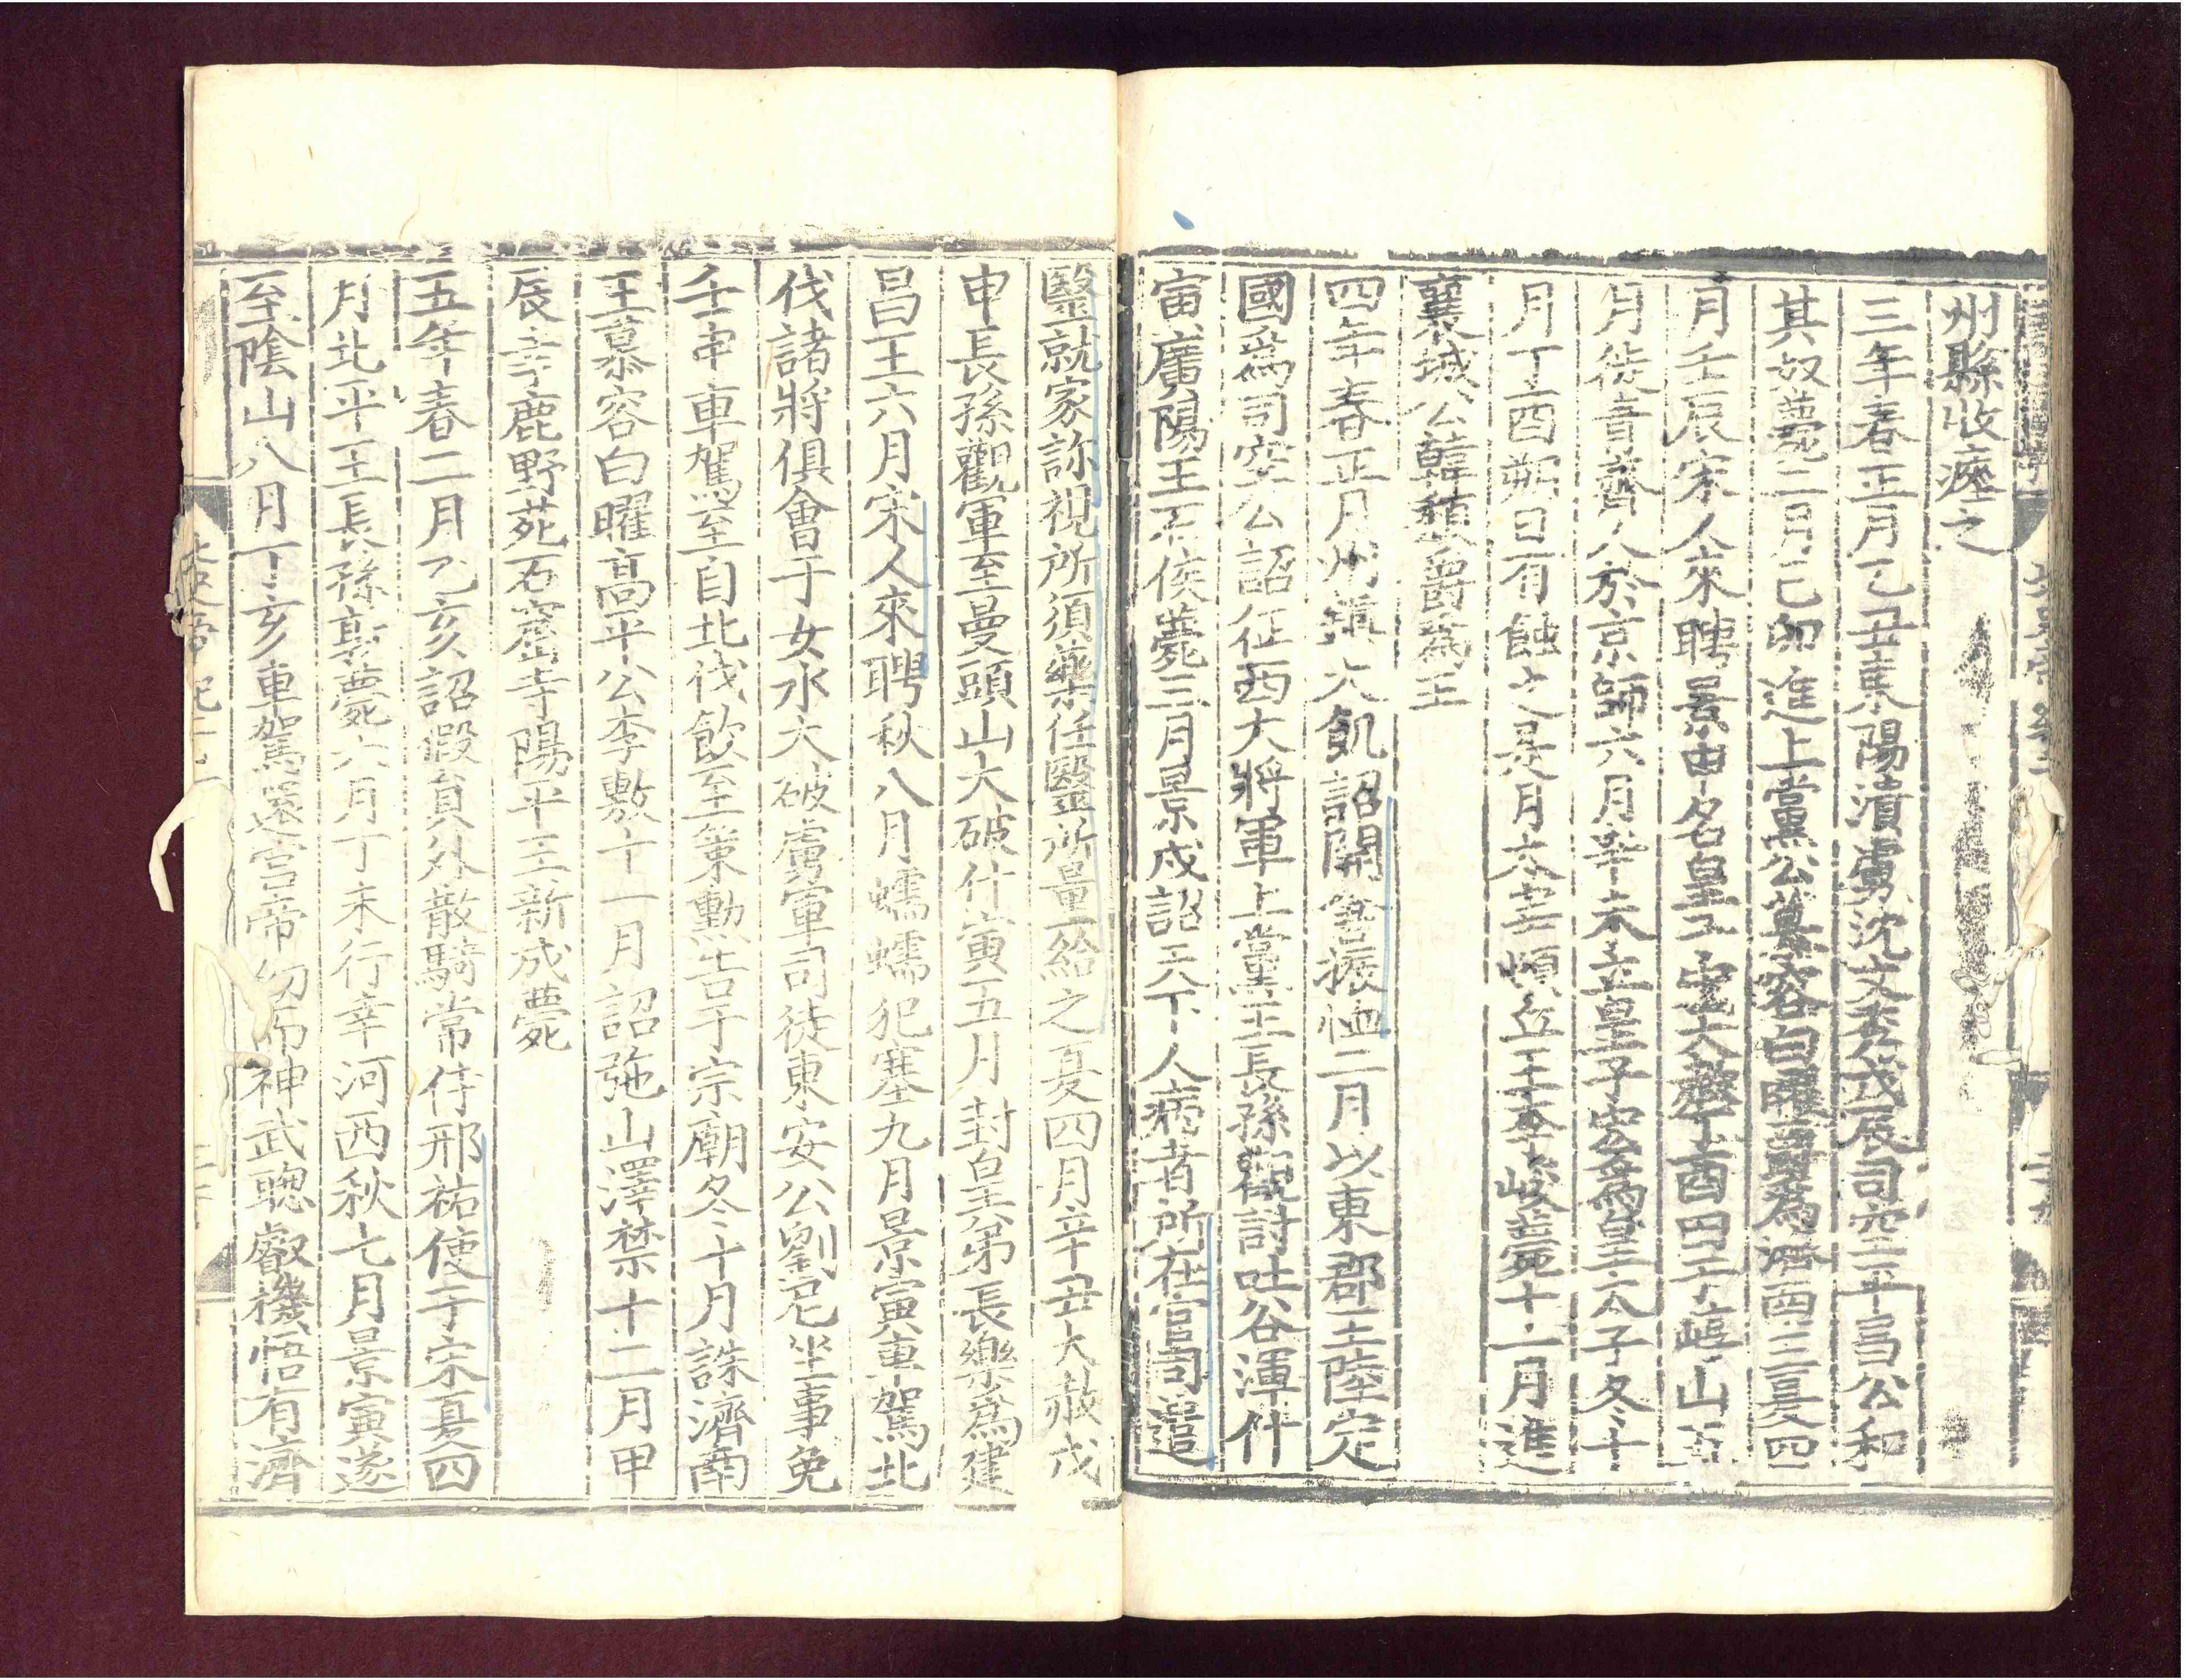 州縣收瘞之
三年春正月乙丑東陽潰虜沈文秀戊辰司空平昌公和
其奴薨二月己卯進上黨公慕容白曜爵爲濟南王夏四
月壬辰宋人來聘景申名皇子宏大赦丁酉田于崞山五
月徙青齊人於京師六月辛未立皇子宏爲皇太子冬十
月丁酉朔日有蝕之是月太芒頓丘王李峻薨十一月進
襄城公韓頹爵爲王
四年春正月州鎮大飢詔開倉振恤二月以東郡王陸定
國爲司空公詔征西大將軍上黨王長孫觀討吐谷渾什
寅廣陽王石侯薨三月景戌詔天下人病者所在官司遣
醫就家診視所須藥任醫所量給之夏四月辛丑大赦戊
申長孫觀軍至曼頭山大破什寅五月封皇弟長樂爲建
昌王六月宋人來聘秋八月蠕蠕犯塞九月景寅車駕北
伐諸將俱會于女水大破虜軍司徒東安公劉尼坐事免
壬申車駕至自北伐飲至策勳告于宗廟冬十月誅濟南
王慕容白曜高平公李敷十一月詔弛山澤禁十二月甲
辰幸鹿野苑石窟寺陽平王新成薨
五年春二月乙亥詔假員外散騎常侍邢祐使于宋夏四
月北平王長孫敦薨六月丁未行幸河西秋七月景寅遂
至陰山八月丁亥車駕還宮帝幼而神武聰叡機悟有濟